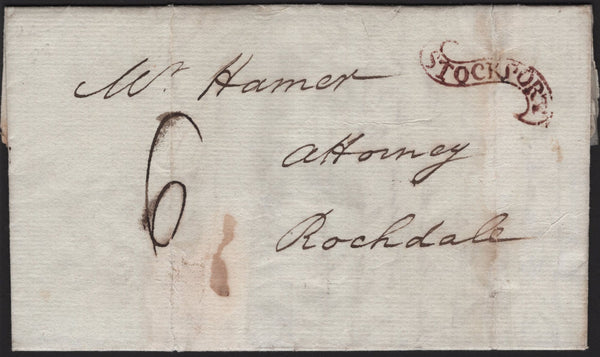 STOCKPORT
Mr Hamer
6
Attorney
Rochdale